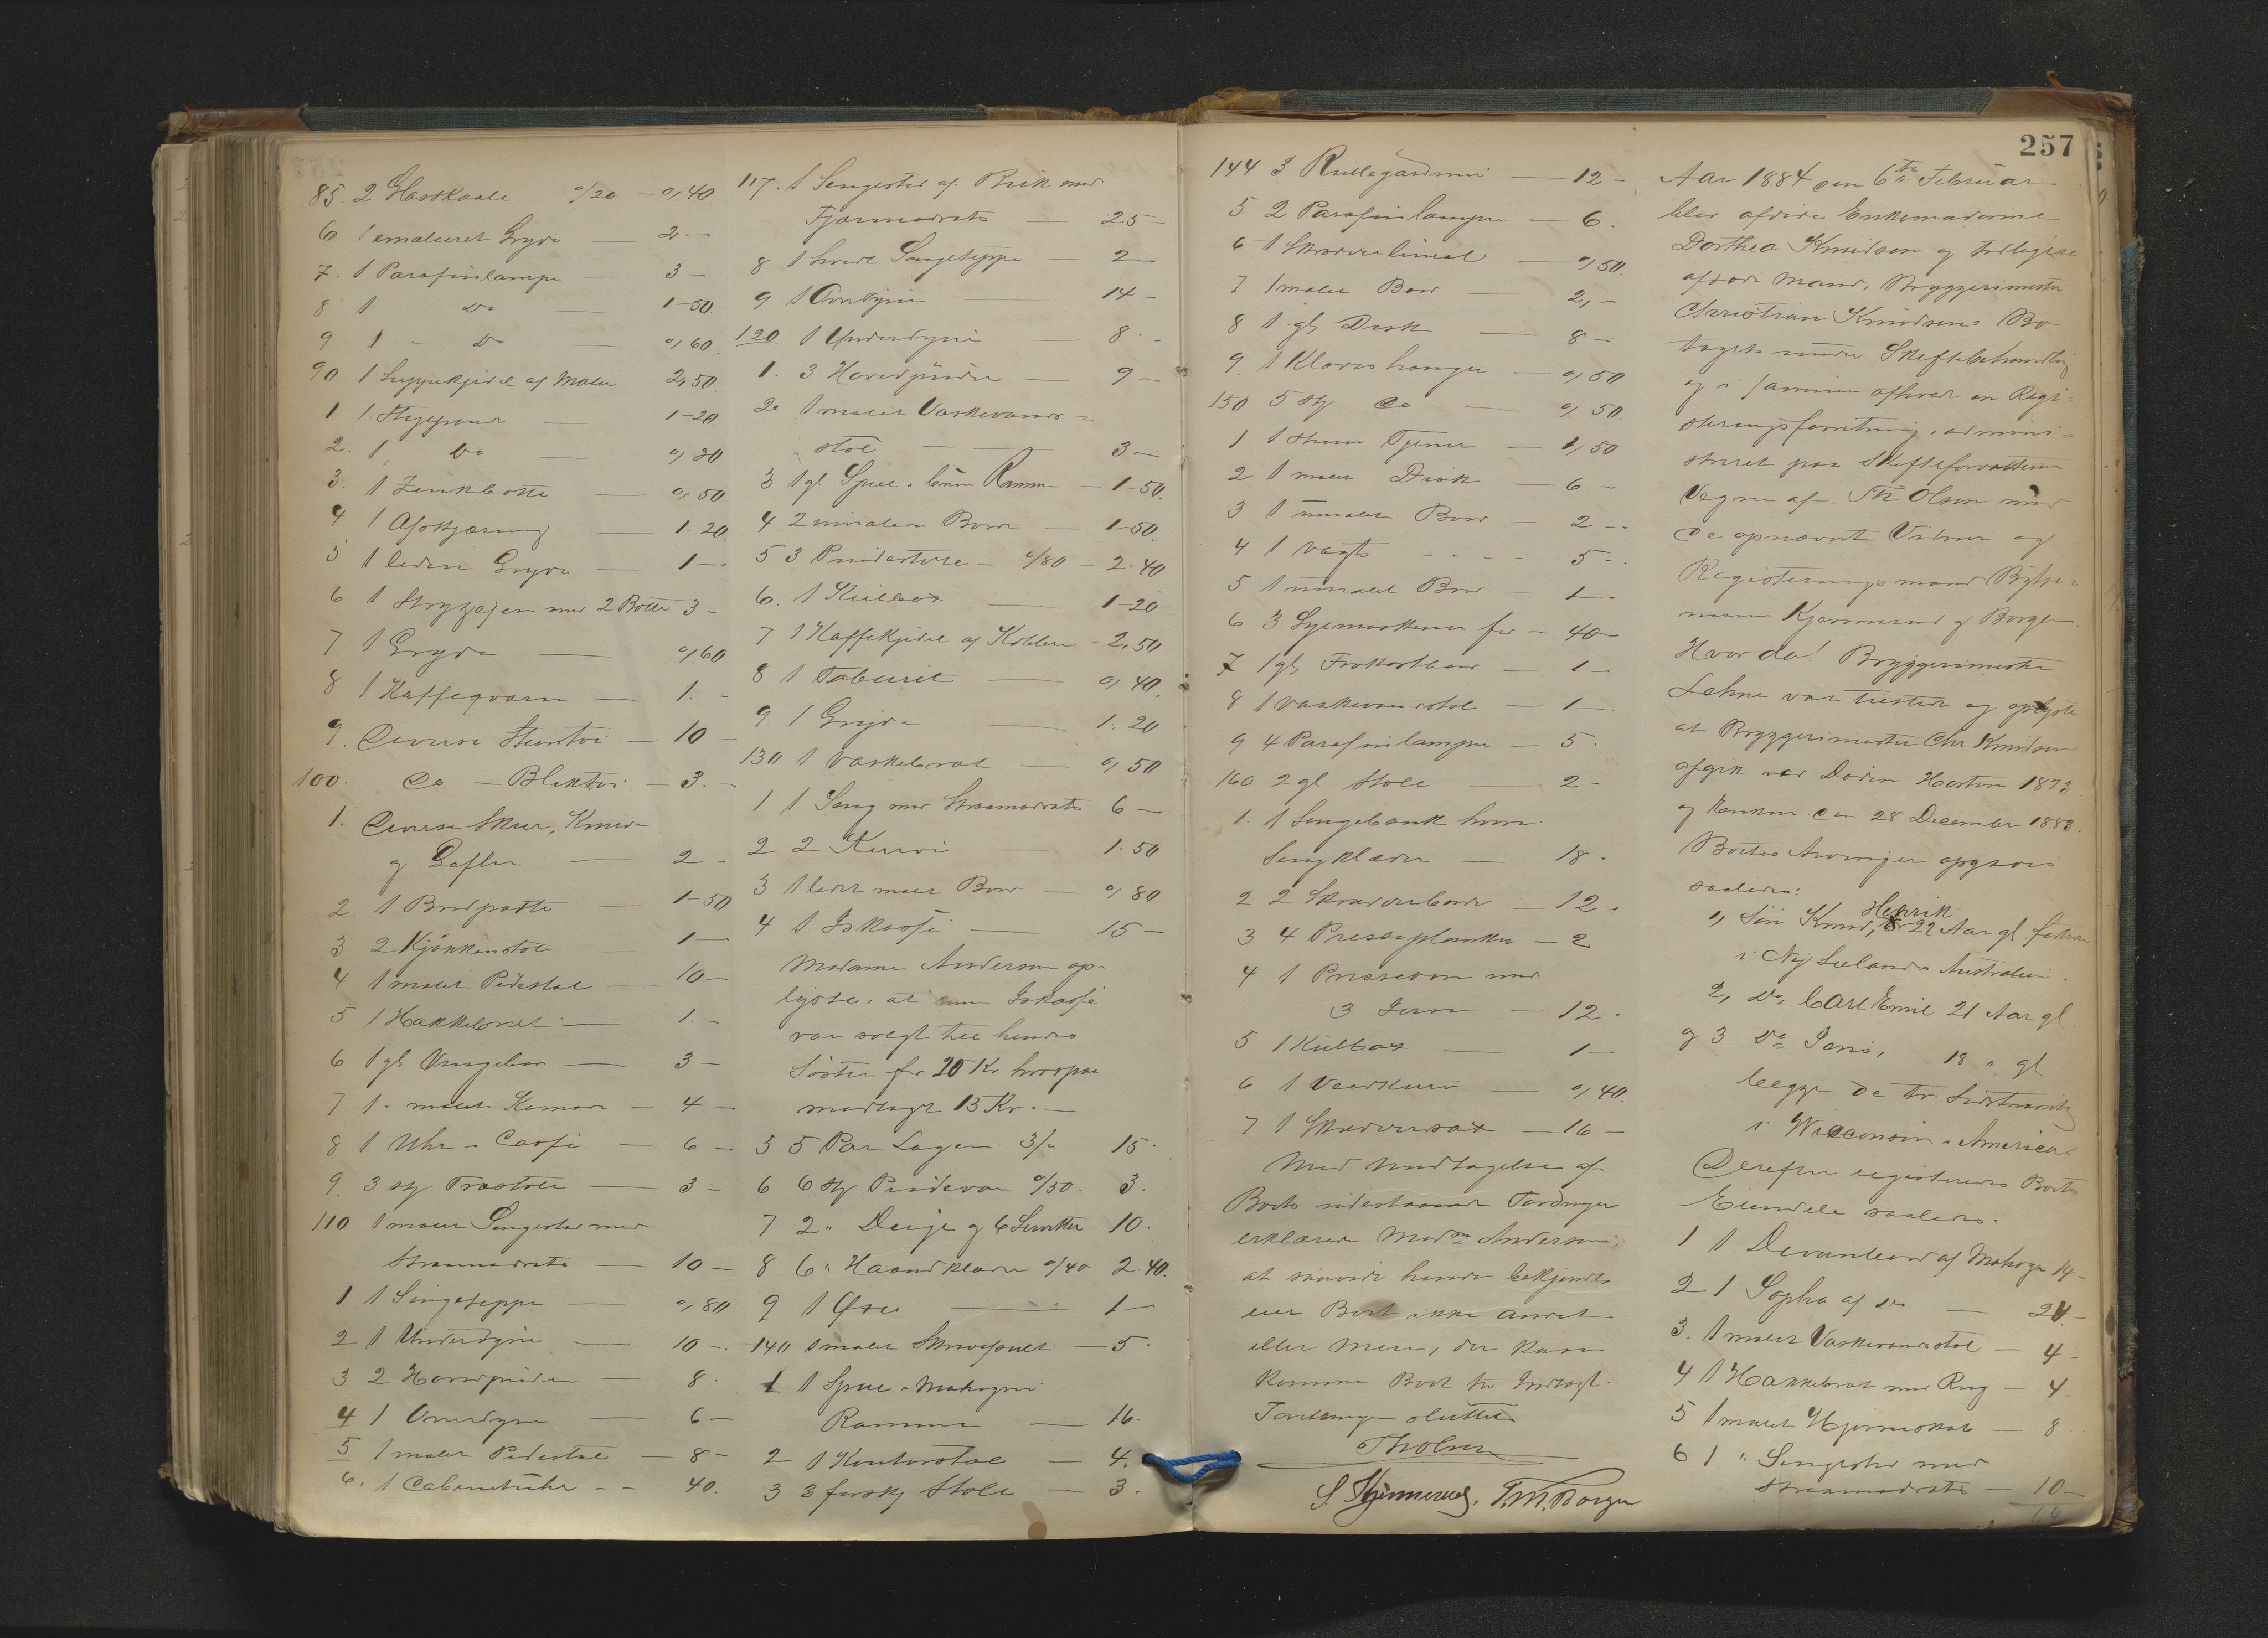 85. 2 Glasskaale 0/20 - 0,40
6 1 emaleret Gryde — 2 -
7. 1 Parafinlampe — 3 -
8 1 Do — 1-50
9 1 - Do — 0,60
90 1 Suppekjedel af Malm 2,50
1 1 Stegepande — 1-20
2. 1 Do — 0,30
3. 1 Zinkbøtte — 0,50
4 1 Opskjæring — 1.20
5 1 liden Gryde — 1 -
6 1 Strygejern med 2 Bolte 3 -
7 1 Gryde — 0,60
8 1 Kaffeqværn — 1. -
9. Diverse Stentøi — 10 -
100. Do — Bliktøi — 3. -
1. Diverse Skeer, Knive
og Gafler — 2 -
2 1 Brødpotte — 1-50
3 2 Kjökkenstole — 1 —
4 1 malet Pidestal — 10 -
5 1 Hakkebræt — 1. -
6 1 gl Vingebor — 3 -
7 1 - malet Komode — 4 -
8 1 Uhr - Casse — 6 -
9. 3 stk Træstole — 3 -
110 1 malet Sengested med
Straamadrats — 10 -
1 1 Sengeteppe — 0,80
2 1 Underdyne — 10 -
3 2 Hovedpuder — 8.
4 1 Overdyne — 6 -
5 1 malet Pidestal — 8 -
6. 1 Cabinetuhr - - 40.
117. 1 Sengested af Birk med
Fjærmadrats — 25 -
8 1 hvidt Sengeteppe — 2 -
9 1 Overdyne 14 -
120 1 Underdyne 8 -
1. 3 Hovedpuder — 9 -
2. 1 malet Vaskevands=
stol — 3 -
3 1 gl Speil i brun Ramme — 1-50.
4 2 umalede Borde — 1-50.
5 3 Pindestole — 0/80 - 2.40
6. 1 Kulbox 1-20
7 1 Kaffekjedel af Kobber - 2,50
8 1 Taburet — 0,40.
9. 1 Gryde — 1.20
130 1 Vaskebræt — 0,50
1 1 Seng med Straamadrats 6 —
2 2 Kurve — 1.50
3 1 lidet malet Bord — 0,80
4 1 Iskasse — 15 —
Madame Andersen op-
lyste, at denne Iskasse
var solgt til hendes
Söster for 20 Kr hvorpaa
modtaget 13 Kr. —
5 5 Par Lagen 3/- 15.
6 6 stk Pudevar 0/50. 3.
7 2 " Duge og 6 Servietter 10.
8 6 " Haandklæder 0/40 2.40.
9 1 Øxe — 1 —
140 1 malet Skrivepult — 5.
1 1 Speil i Mahogni
Ramme — 16.
2 1 Kontorstol — 4.
3 3 forskj Stole — 3.
144 3 Rullegardiner — 12 -
5 2 Parafinlamper — 6.
6 1 Skrædderlineal — 0,50.
7 1 malet Bord 2, -
8 1 gl Disk — 8 -
9. 1 Klædeshænger — 0,50
150 5 stk do — 0,50.
1 1 stum Tjener — 1,50
2 1 malet Disk — 6 -
3 1 umalet Bord — 2 - -
4 1 Vægt - - - - 5 - .
5 1 umalet Bord — 1 -
6 3 Syemaskiner for — 40 -
7 1 gl Frokostbord — 1 -
8 1 Vaskevandstol — 1 -
9 4 Parafinlamper — 5.
160 2 gl Stole — 2 -
1. 1 Sengebænk hvori
Sengklæder — 18.
2 2 Skrædderborde — 12.
3 4 Presseplanker — 2
4 1 Presseovn med
3 Jern — 12.
5 1 Kulbox — 1 —
6 1 Veedkurv — 0,40.
7 1 Skræddersax — 16 -
Med Undtagelse af
Boets udestaaende Fordringer
erklærede Madme Andersen,
at saavidt hende bekjendt
eier Boet ikke andet
eller mere, der kan
komme Boet til Indtægt.
Forretningen sluttet
Th Olsen
S. Kjennerud. T. M. Borgen
257
Aar 1884 den 6te Februar
blev afdøde Enkemadame
Dorthea Knudsen og tidligere
afdøde Mand, Bryggerimester
Christian Knudsens Bo
taget under Skiftebehandling
og i samme afholdt en Regi=
streringsforretning, admini=
streret paa Skifteforvalterens
Vegne af Th Olsen med
de opnævnte Vidner og
Registreringsmænd
Kjennerud og Borgen.
Hvor da! Bryggerimester
Lehne var tilstede og oplyste
at Bryggerimester Chr Knudsen
afgik ved Døden Høsten 1873
og Enken den 28 December 1883.
Boets Arvinger opgaves
saaledes:
1, Sön Knud, Henrik 22 Aar gl
i Ny Seeland i Australien.
2, Do, Carl Emil 21 Aar gl.
og 3 Do Jens, 18 " gl
begge de to Sidstnævnte
i Wisconsin i America.
Derefter registreredes Boets
Eiendele saaledes.
1 1 Divanbord af Mahogni 14 -
2 1 Sopha af do — 24. -
3. 1 malet Vaskevandstol — 4 -
4 1 Hakkebræt med — 4.
5 1 malet Hjørneskab — 8
6 1 " Sengested med
Straamadrats — 10 -